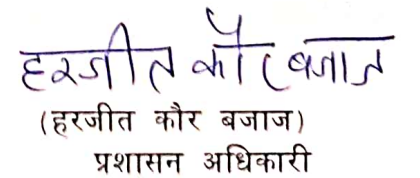 हरजीत कौर बजाज
(हरजीत कौर बजाज)
प्रशासन अधिकारी